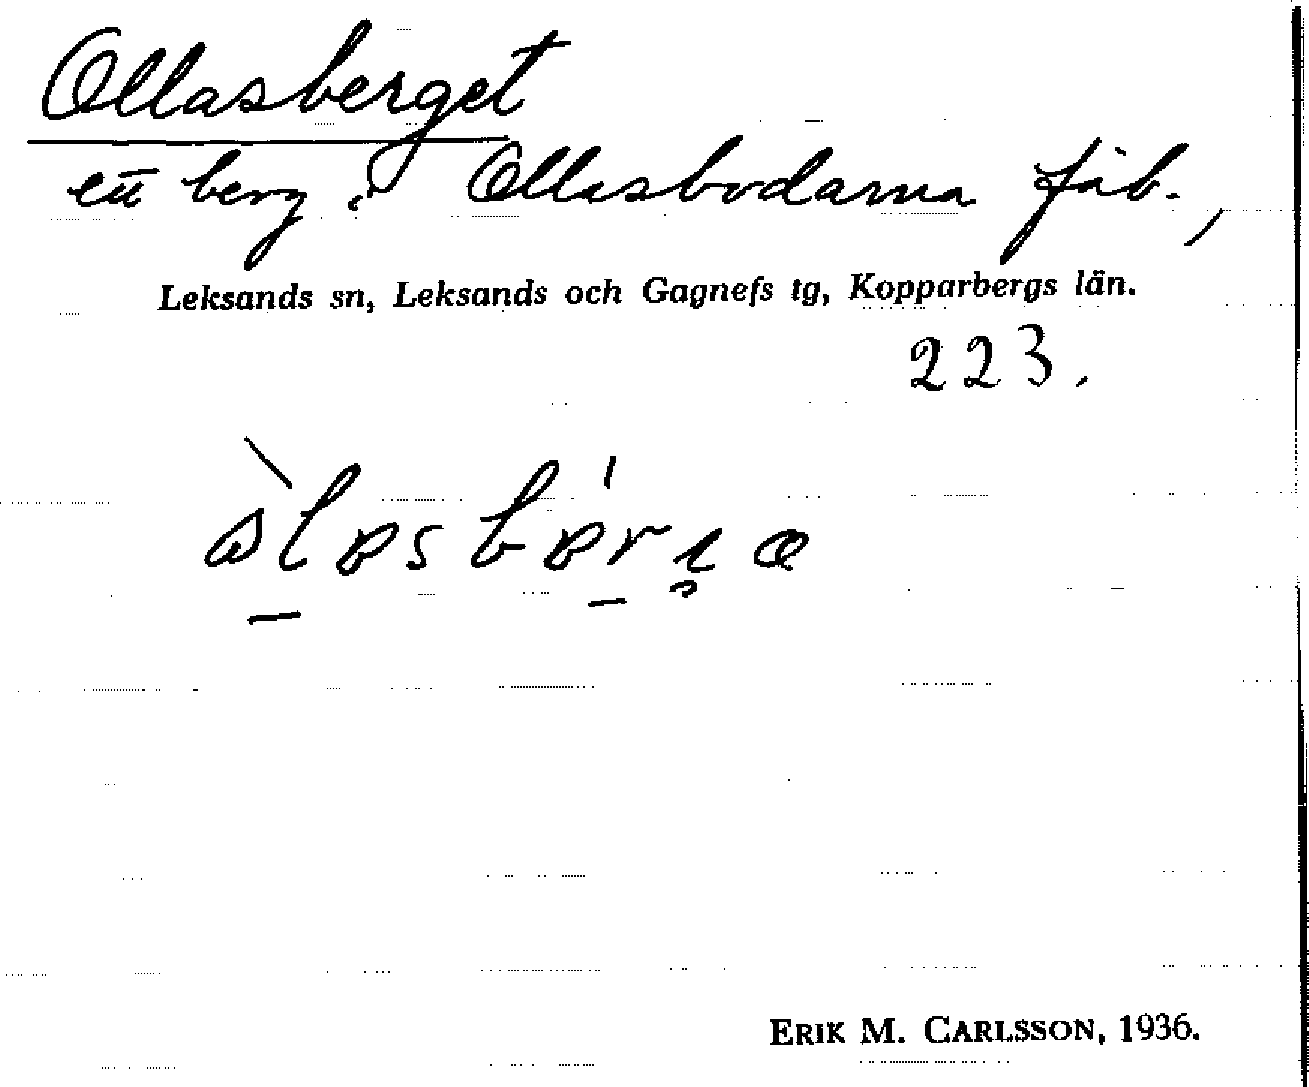 Ollasberget
ett berg i Ollasbodarna fäb.,
Leksands sn, Leksands och Gagnefs tg, Kopparbergs län.
223.
ERIK M. CARLSSON, 1936.